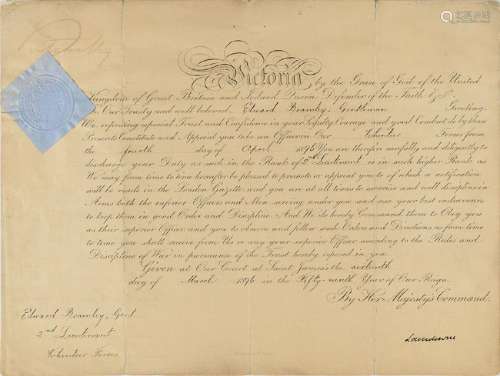 Victoria by the Grace of God of the United
Kingdom of Great Britain and Ireland Queen, Defender of the Faith &c
To Our Trusty and well beloved Edward Bramley, Gentleman Greeting.
We, reposing especial Trust and Confidence in your Loyalty Courage and good Conduct do by these
Presents Constitute and Appoint you to be an Officer in Our Volunteer Forces from
the fourth day of April 1896 You are therefore carefully and diligently to
discharge your Duty as such in the Rank of 2nd Lieutenant or in such higher Rank as
We may from time to time hereafter be pleased to promote or appoint you to of which a notification
will be made in the London Gazette and you are at all times to exercise and well discipline in
Arms both the inferior Officers and Men serving under you and use your best endeavours
to keep them in good Order and Discipline. And We do hereby Command them to Obey you
as their superior Officer and you to observe and follow such Orders and Directions as from time
to time you shall receive from Us or any your superior Officer according to the Rules and
Discipline of War in pursuance of the Trust hereby reposed in you
Given at Our Court at Saint James's the sixteenth
day of March 1896 in the Fifty ninth Year of Our Reign.
By Her Majesty's Command.
Edward Bramley, Gent.
2nd Lieutenant
Volunteer Forces
Lansdowne